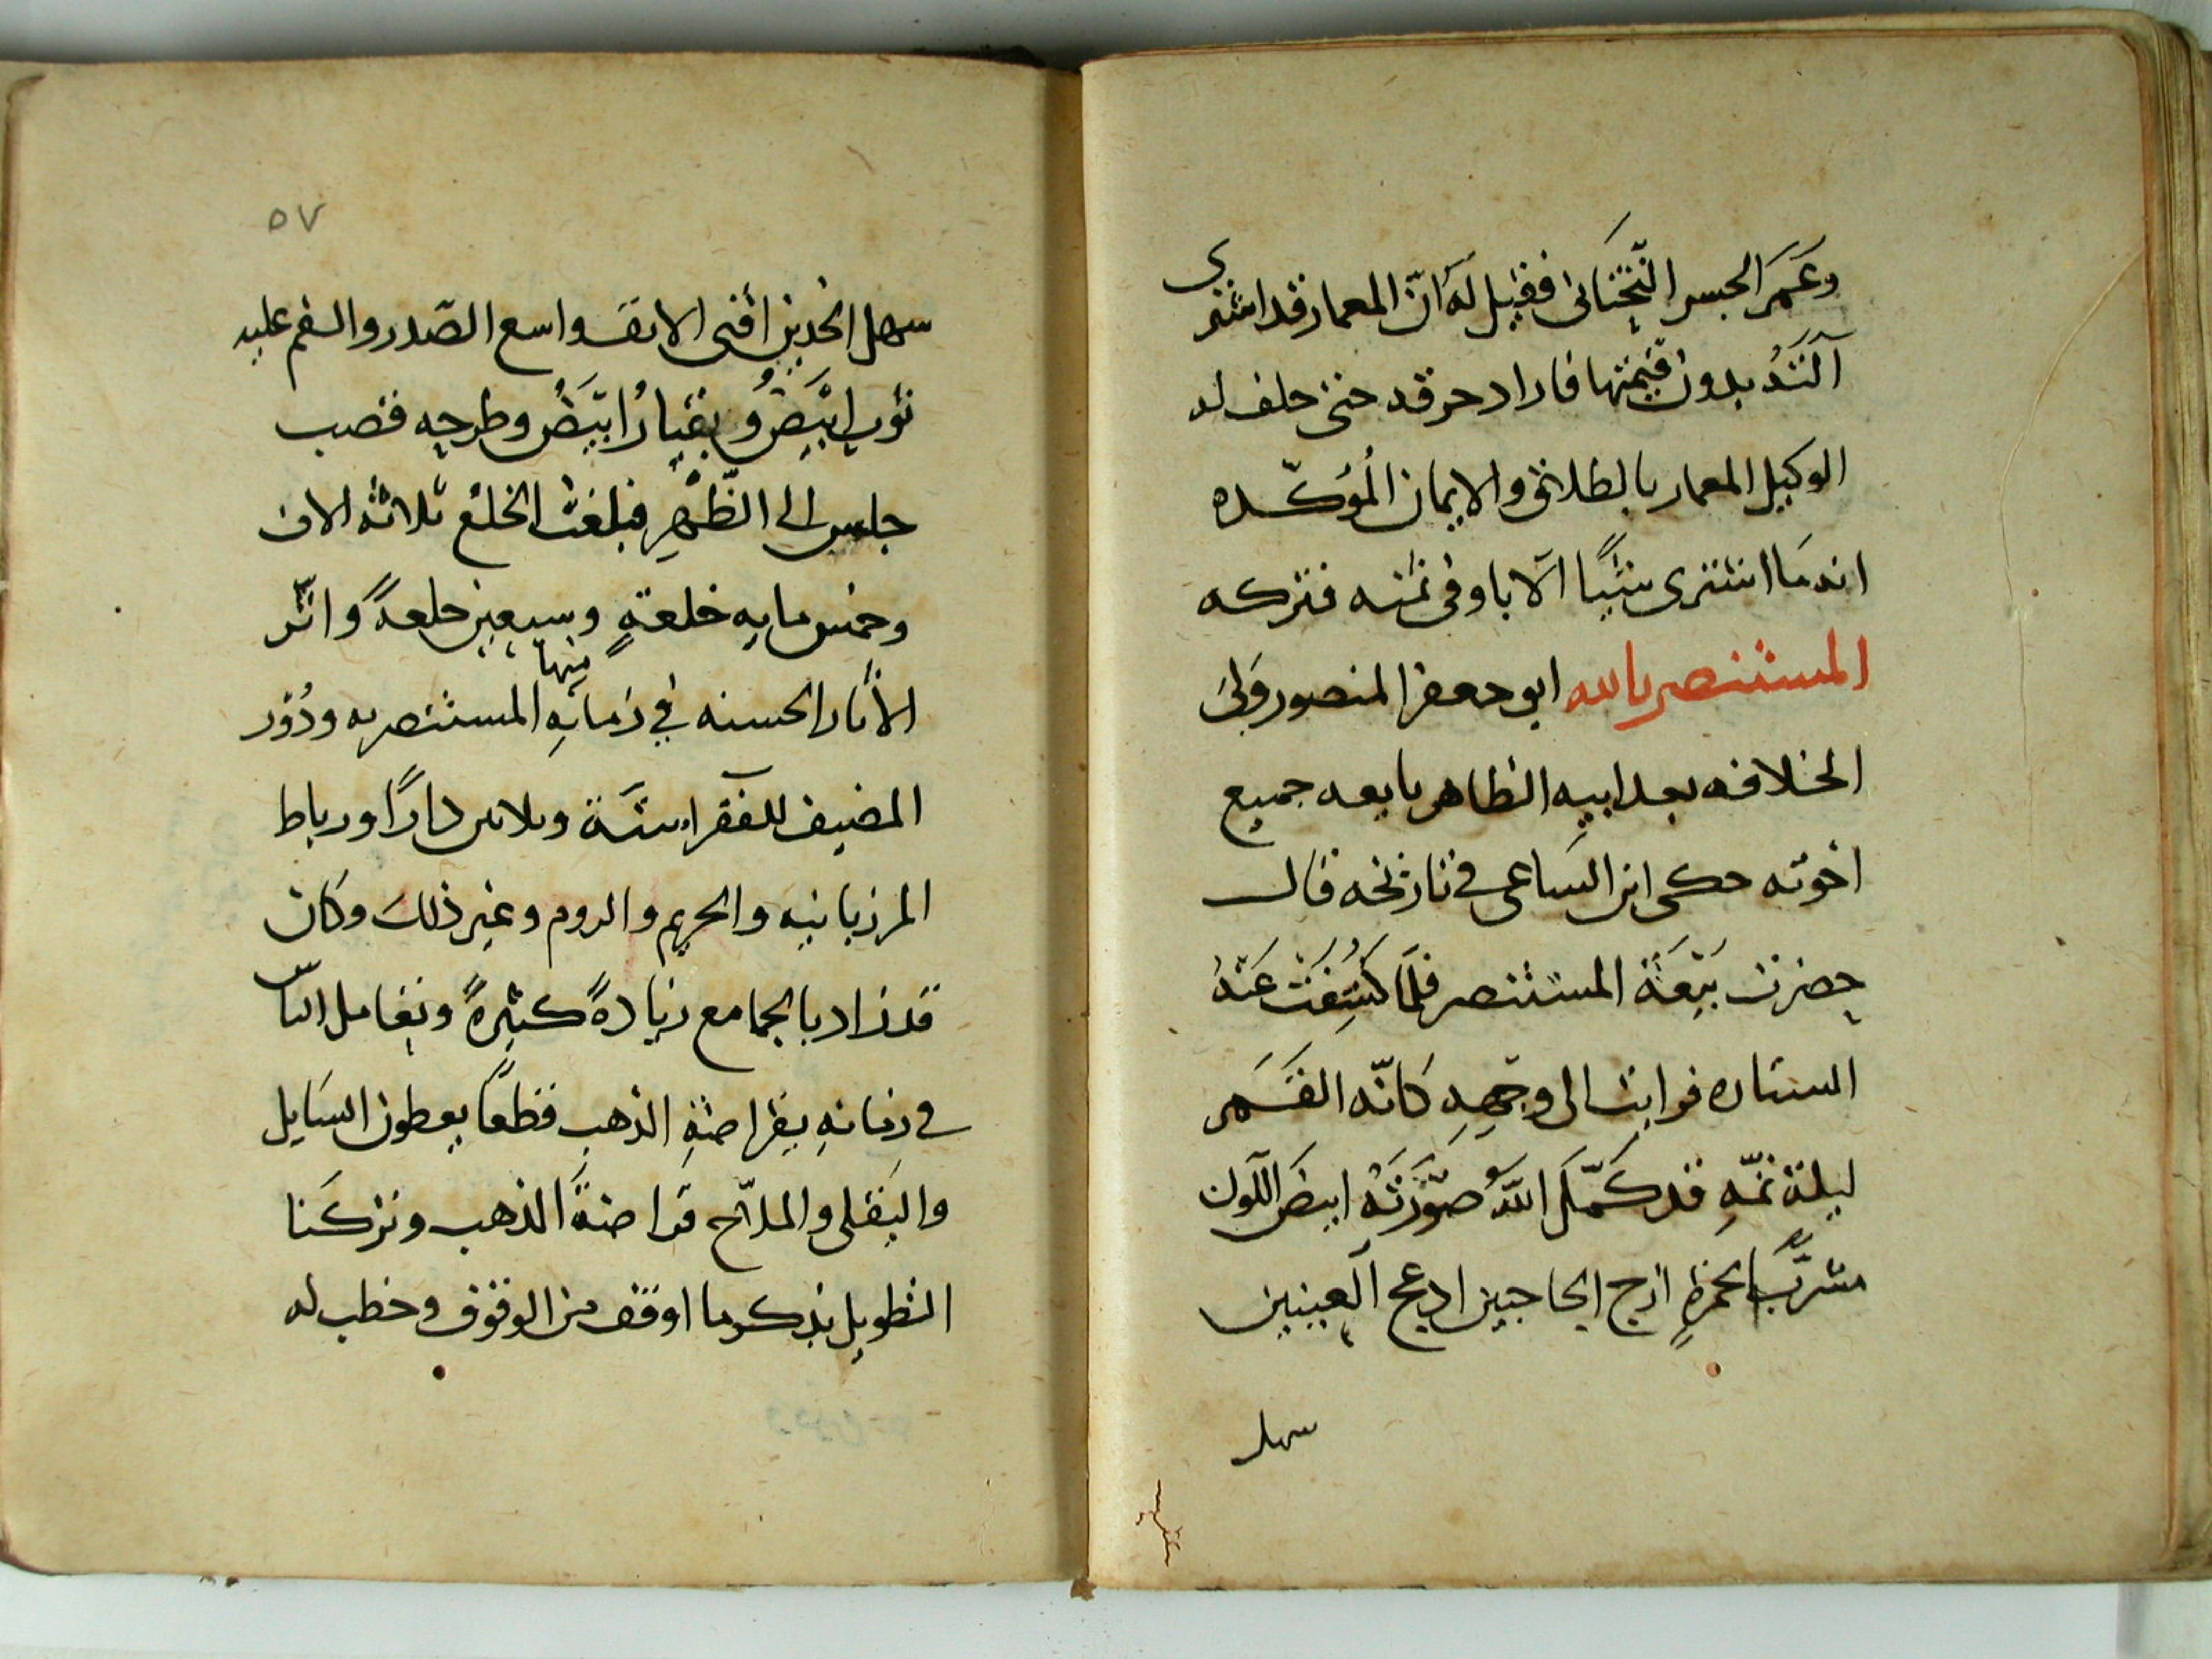 وعَمَر الجسر التَّحْتَانى فقيل لَهُ انّ المعمار قد اشترى
بدون قيمتها فاراد حتى حلف له
الوكيل المعمار بالطلاق والايمان المُؤكّده
انه مَا اشترى شيئًا الّا باوفى ثمنه فتركه
المستنصر بالله ابو جعفر المنصور وَلىَ
الخلافه بعد ابيهِ الظاهر بايعه جميع
اخوته حكى ابن السَاعى فى تاريخه قال
حضرت بَيْعَة المستنصر فلَمّا كُشِفَتْ عَنْهُ
الستاره فرايت الى وجههِ كَانّه القَمَر
ليلة تمّهِ قد كَمّلَ اللهُ صُوْرَتَهُ ابيضَ اللّون
مشرّبًا بحمرةٍ ازج الحاجبين ادعج العينين
سهل
٥٧
سهل الخدين أقنى الانف واسع الصّدر والفم عليه
ثوب ابْيَضُ وبقيارُ ابْيَضُ وطرحه قصب
جلس الى الظّهرِ فبلغت الخلع ثلاثة الاف
وخمس مايه خلعةٍ وسبعين خلعةً واثّر
الأثار الحسنه في زمانِهِ منها المستنصريه ودُوْر
المضيف للفقرا ستَة وثلاثين دارًا ورباط
المرزبانيه والحريم والروم وغير ذلك وكان
قد زاد بالجامع زيادةً كثيرةً وتعامل الناس
فى زمانهِ بقراضةِ الذهب قطعًا يعطون السَايل
والبَقلى والملاّح قراضةَ الذهب وتركنا
التطويل بذكر ما اوقف من الوقوف وخطب له